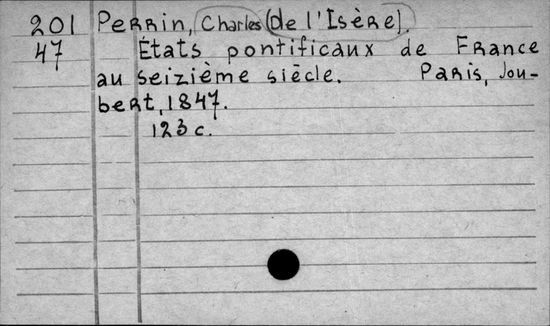 201 Perrin, Charles (de l'Isère).
47 États pontificaux de France
au seizième siècle. Paris, Jou-
bert, 1847.
123 c.